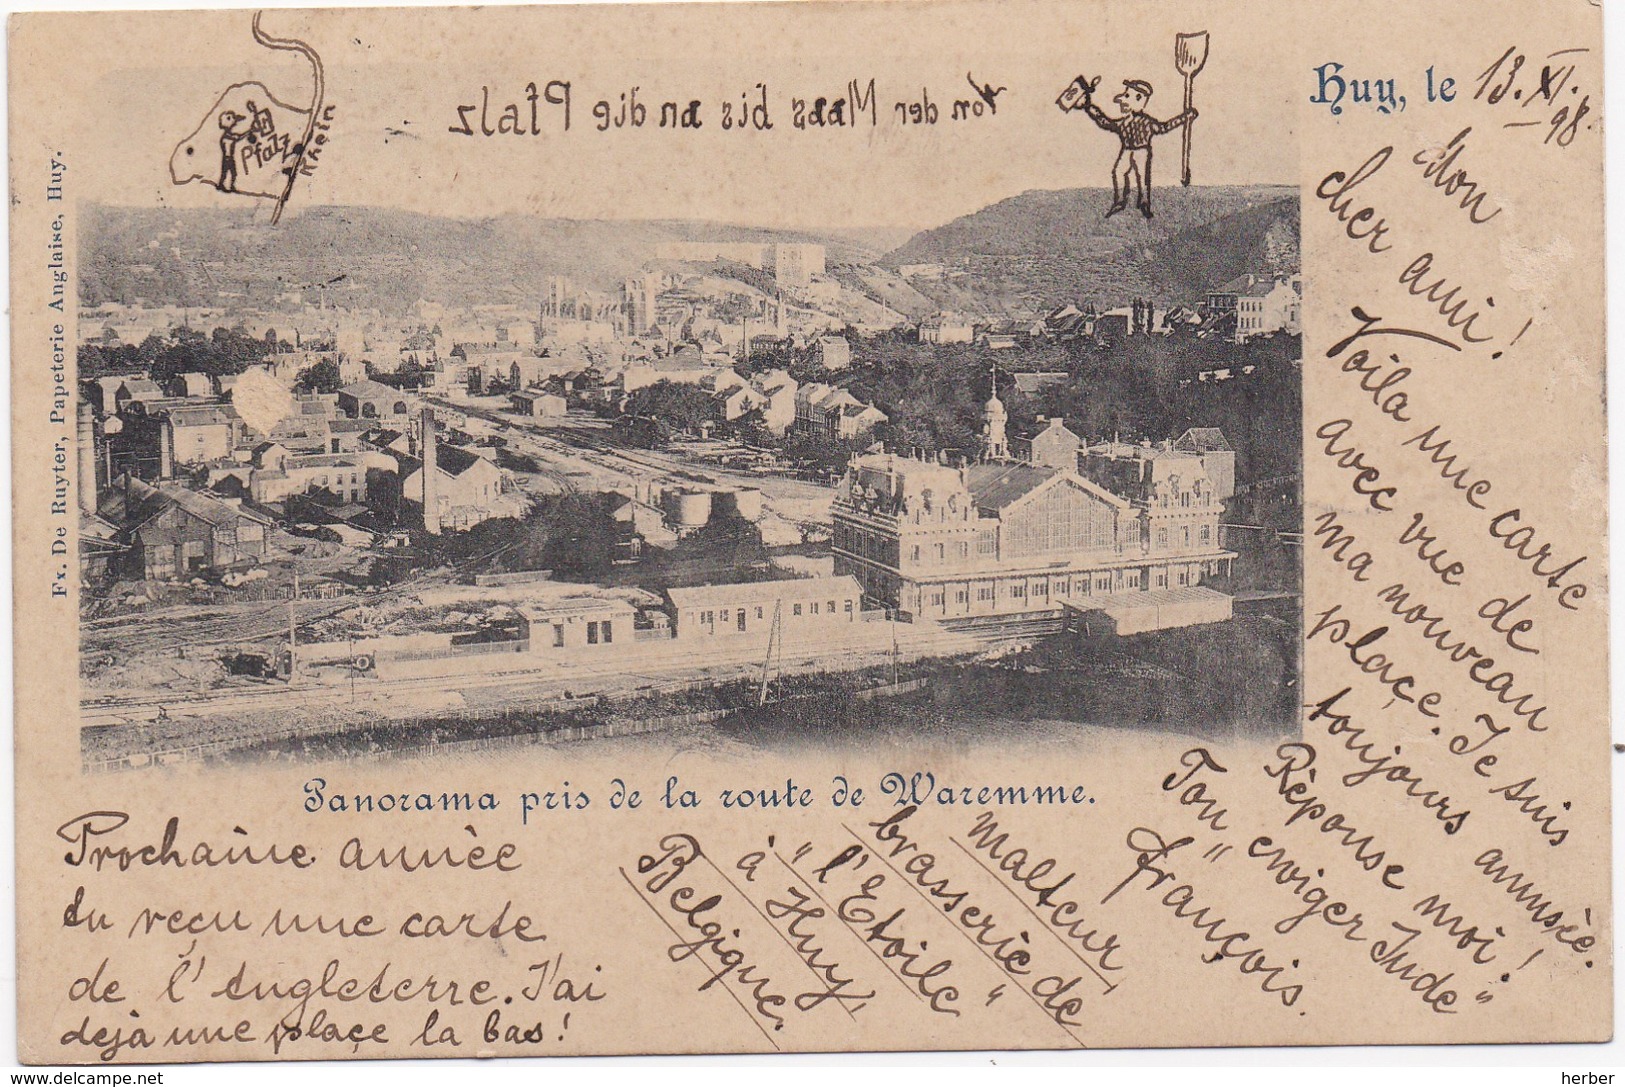 von der Maas bis an die Pfalz
Pfalz
Rhein
Huy, le 13. XI. 98.
Fx. De Ruyter, Papeterie Anglaise, Huy.
Mon
cher ami!
Voila une carte
avec vue de
ma nouveau
plaçe. Je suis
toujours amusèe.
Rèponse moi!
Ton „ewiger Jude"
François.
Malteur
brasserie de
„l'Etoile"
à Huy,
Belgique.
Panorama pris de la route de Waremme.
Prochaine annèe
tu reçu une carte
de l'Angleterre. J'ai
deja une plaçe la bas!
delcampe.net
herber